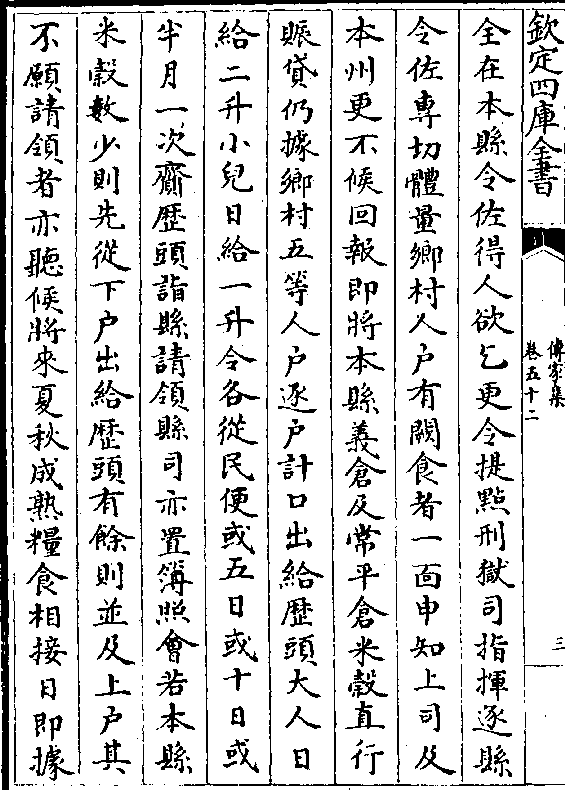 欽定四庫全書
傳家集
卷五十二
三
全在本縣令佐得人欲乞更令提㸃刑獄司指揮逐縣
令佐專切體量鄉村人户有闕食者一面申知上司及
本州更不候回報即將本縣義倉及常平倉米穀直行
賑貸仍據鄉村五等人户逐户計口出給歴頭大人日
給二升小兒日給一升令各從民便或五日或十日或
半月一次齎歴頭詣縣請領縣司亦置簿照會若本縣
米穀數少則先從下户出給歴頭有餘則並及上户其
不願請領者亦聽候將來夏秋成熟糧食相接日即據